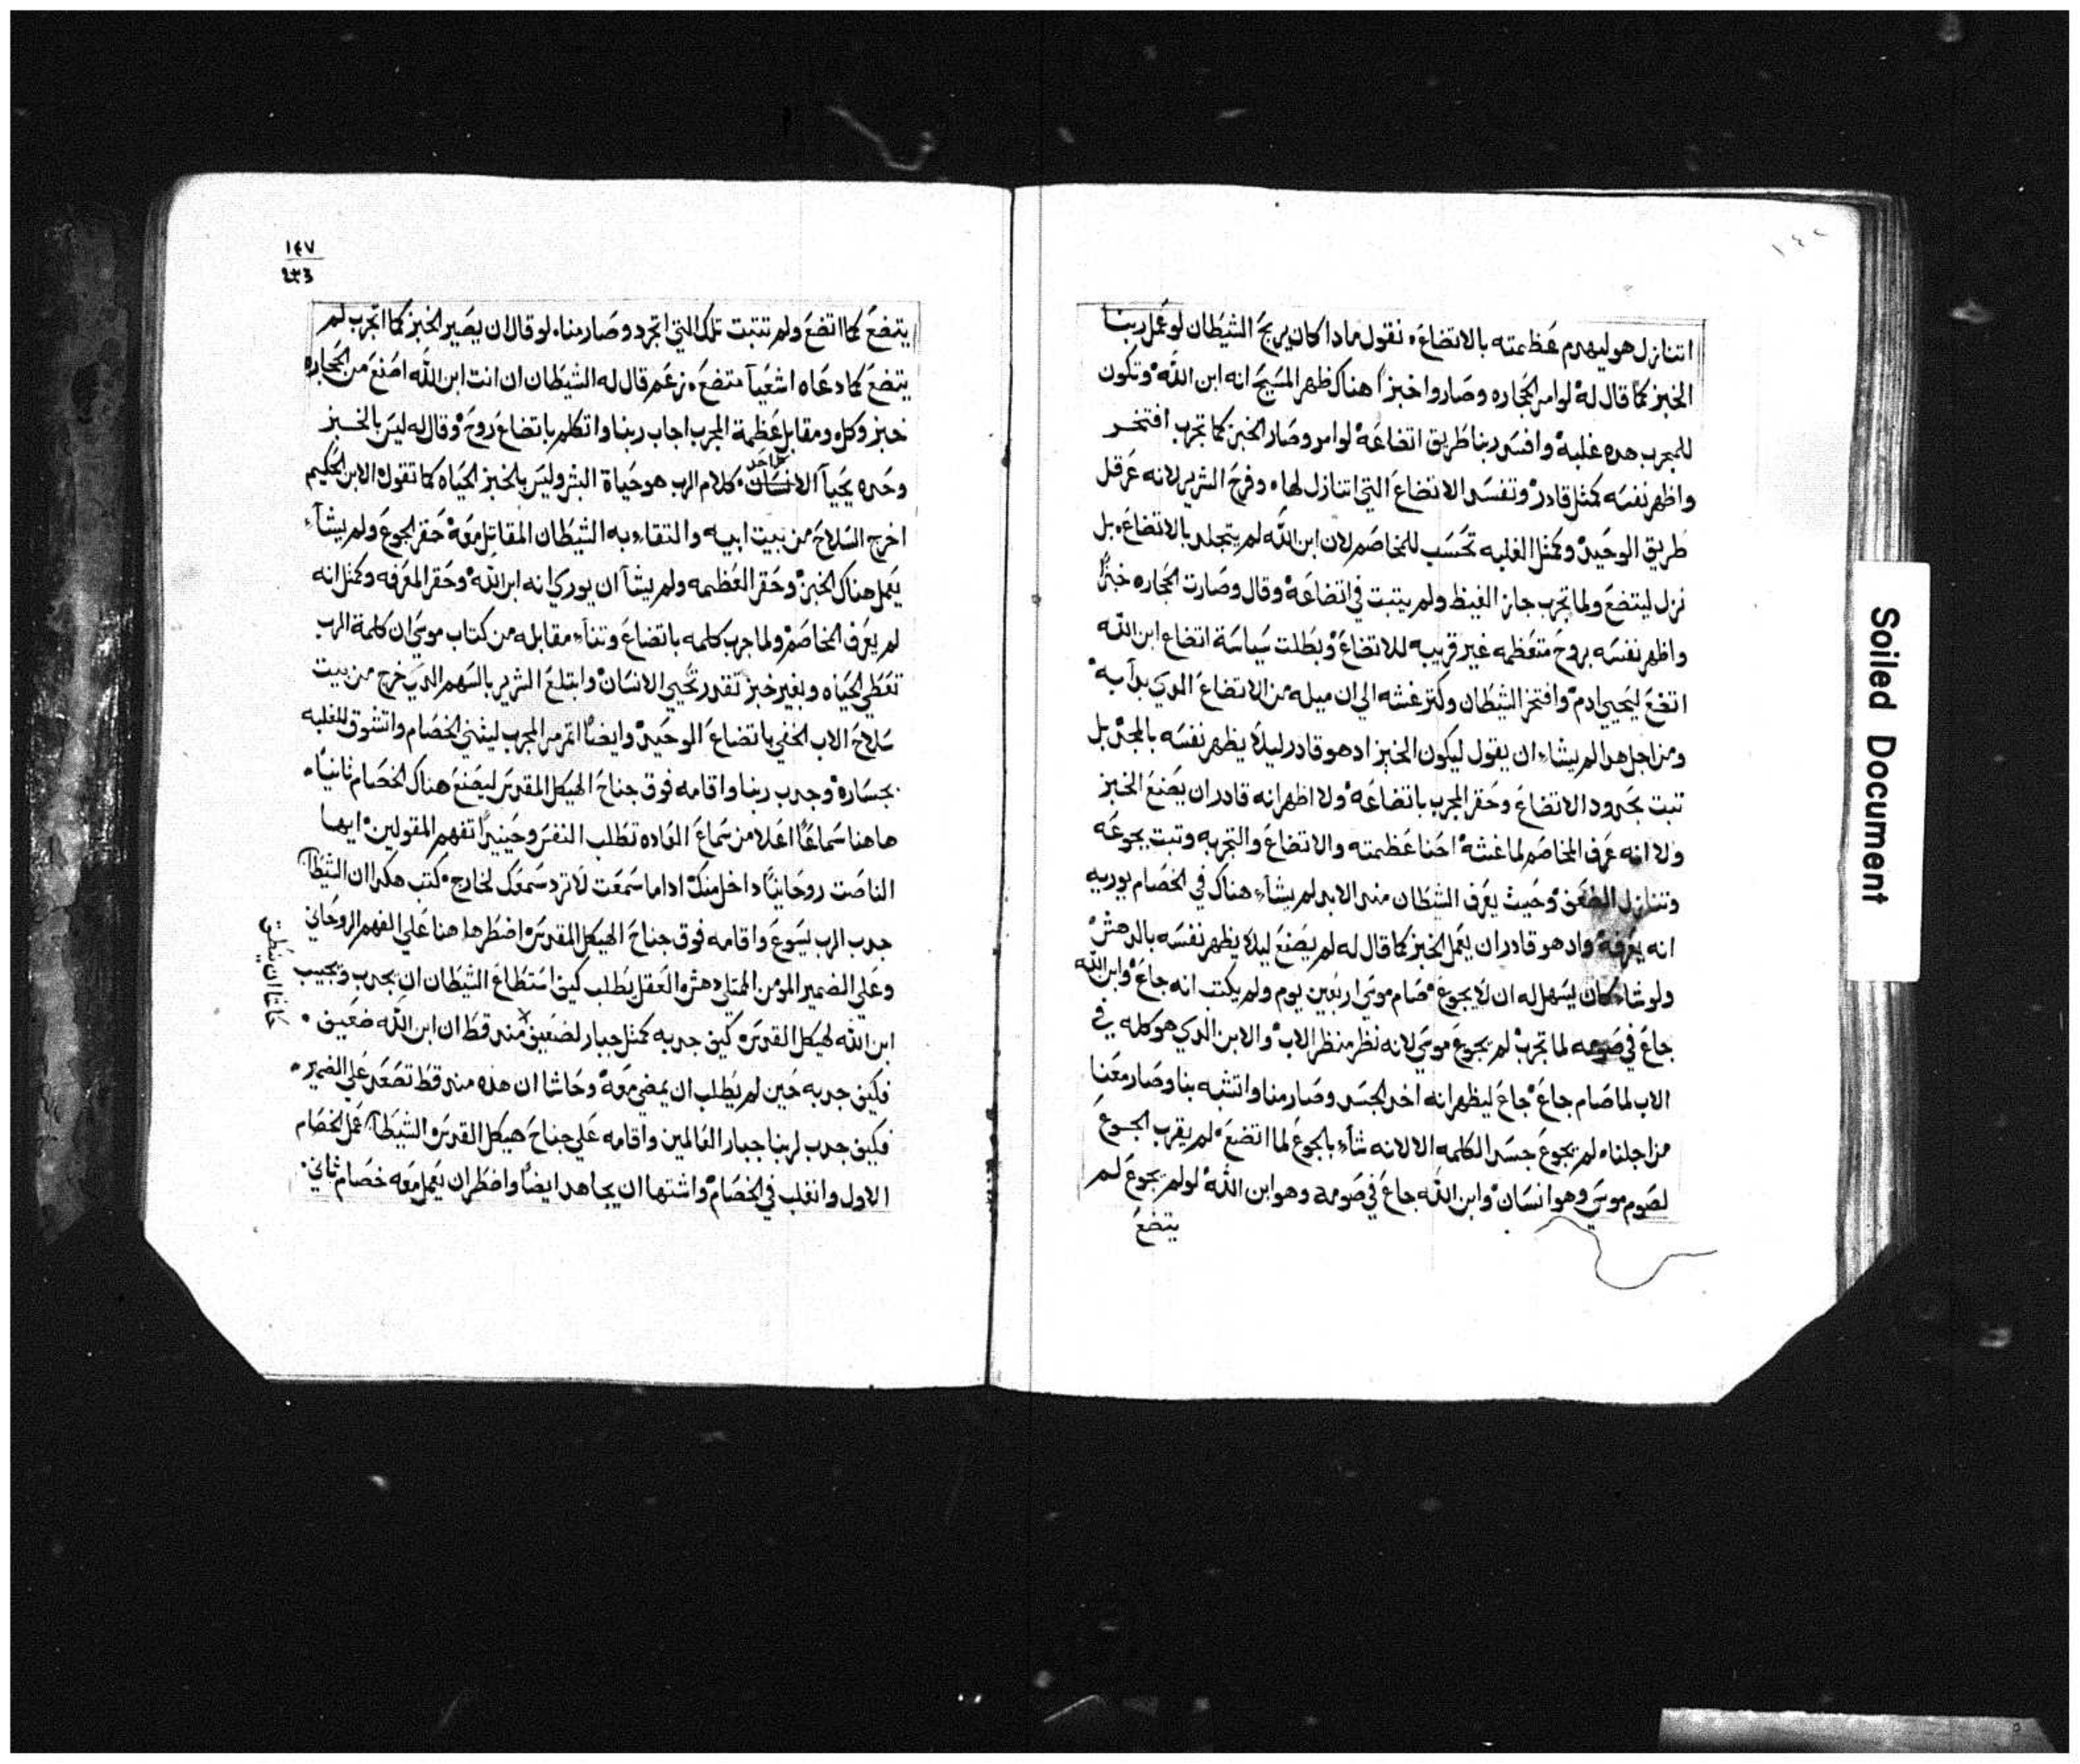 ١٤٢
اتنازل هو ليهدم عظمته بالاتضاع. نقول ماذا كان يربح الشيطان لو عمل ربنا
الخبز كما قال له لو امر الحجاره وصاروا خبزاً هناك ظهر المسيح انه ابن الله وتكون
للمجرب هده غلبه وافسد ربنا طريق اتضاعه لو امر وصار الخبز كما تجرب افتخر
واظهر نفسه كمثل قادر وتفسد الاتضاع التي اتنازل لها. وفرح الشرير لانه عرقل
طريق الوحيد وكمثل الغلبه تحسب للمخاصم لان ابن الله لم يتجلد بالاتضاع. بل
نزل ليتضع ولما تجرب جاز الغيظ ولم يتبت في اتضاعه وقال وصارت الحجاره خبزاً
واظهر نفسه بروح متعظمه غير قريبه للاتضاع وبطلت سياسة اتضاع ابن الله
اتضع ليحيي ادم وافتخر الشيطان وكتر غشه الي ان ميله من الاتضاع الدي بدآ به
ومن اجل هدا لم يشاء ان يقول ليكون الخبز اد هو قادر ليلا يظهر نفسه بالمجد بل
تبت بحدود الاتضاع وحقر المجرب باتضاعه ولا اظهر انه قادر ان يصنع الخبز
ولا انه عرف المخاصم لما غشه احنا عظمته والاتضاع والتجربه وتبت بجوعه
وتنازل الضعف وحيث يعرف الشيطان مند الابد لم يشآء هناك في الخصام يوريه
انه يعرفه واد هو قادر ان يعمل الخبز كما قال له لم يصنع ليلا يظهر نفسه بالدهش
ولو شاء كان يسهل له ان لا يجوع صام موسي اربعين يوم ولم يكتب انه جاع وابن الله
جاع في صومه لما تجرب لم يجوع موسي لانه نظر منظر الاب والابن الدي هو كله في
الاب لما صام جاع جاع ليظهر انه اخد الجسد وصار منا واتشبه بنا وصار معنا
من اجلنا. لم يجوع جسد الكلمه الا لانه شآء بالجوع لما اتضع لم يقرب الجوع
لصوم موسي وهو انسان وابن الله جاع في صومه وهو ابن الله لو لم يجوع لم
يتضع
١٤٧
٤٣٣
يتضع كما اتضع ولم تتبت تلك التي اتجرد وصار منا. لو قال ان يصير الخبز كما اتجرب لم
يتضع كما دعاه اشعيآ متضع. زعم قال له الشيطان ان انت ابن الله اصنع من الحجاره
خبز وكل ومقابل عظمة المجرب اجاب ربنا واتكلم باتضاع روح وقال له ليس بالخبز
وحده يحيآ الانسان كلام الرب هو حياة البشر وليس بالخبز الحياه كما تقول الابن الحكيم
اخرج السلاح من بيت ابيه والتقاء به الشيطان المقاتل معه حقر الجوع ولم يشآء
يعمل هناك الخبز وحقر العظمه ولم يشآ ان يوري انه ابن الله وحقر المعرفه وكمثل انه
لم يعرف المخاصم ولما جرب كلمه باتضاع وتنآء مقابله من كتاب موسي ان كلمة الرب
تعطي الحياه وبغير خبز تقدر تحيي الانسان وابتلع الشرير بالسهم الدي خرج من بيت
سلاح الاب الخفي باتضاع الوحيد وايضاً اتمرمر المجرب ليثني الخصام واتشوق للغلبه
بجساره وجدب ربنا واقامه فوق جناح الهيكل المقدس ليصنع هناك الخصام ثانياً.
هاهنا سماعاً اعلا من سماع العاده تطلب النفس وحينيداً تفهم المقولين ايها
الناصت روحانياً داخل منك اداما سمعت لا ترد سمعك لخارج كتب هكدا ان الشيطان
جدب الرب يسوع واقامه فوق جناح الهيكل المقدس اضطر هاهنا علي الفهم الروحاني
وعلي الضمير المومن الممتلي دهش العقل يطلب كيف استطاع الشيطان ان يجدب ويجيب
ابن الله لهيكل القدس كيف جدبه كمثل جبار لضعيف مند قط ان ابن الله ضعيف.
حاشا ان ينطق
فكيف جدبه حين لم يطلب ان يمضي معه وحاشا ان هده مند قط تصعد علي الضمير.
فكيف جدب لربنا جبار العالمين واقامه علي جناح هيكل القدس الشيطان عمل الخصام
الاول وانغلب في الخصام واشتها ان يجاهد ايضاً واضطر ان يعمل معه خصام ثاني.
Soiled Document